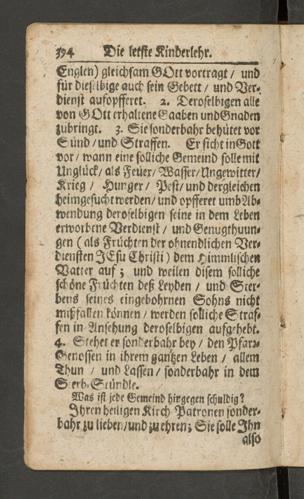 394 Die letste Kinderlehr.
Englen) gleichsam GOtt vortragt / und
für dieselbige auch sein Gebett / und Ver-
dienst aufopfferet. 2. Deroselbigen alle
von GOtt erhaltene Gaaben und Gnaden
zubringt. 3. Sie sonderbahr behütet vor
Sünd / und Straffen. Er sicht in Gott
vor / wann eine solliche Gemeind solle mit
Unglück / als Feuer / Wasser / Ungewitter /
Krieg / Hunger / Pest / und dergleichen
heimgesucht werden / und opfferet umb Ab-
wendung deroselbigen seine in dem Leben
erworbene Verdienst / und Genugthuun-
gen (als Früchten der ohnendlichen Ver-
diensten JEsu Christi) dem Himmlischen
Vatter auf; und weilen disem solliche
schöne Früchten deß Leyden / und Ster-
bens seines eingebohrnen Sohns nicht
mißfallen können / werden solliche Straf-
fen in Ansehung deroselbigen aufgehebt.
4. Stehet er sonderbahr bey / den Pfarr-
Genossen in ihrem gantzen Leben / allem
Thun / und Lassen / sonderbahr in dem
Sterb-Stündle.
Was ist jede Gemeind hingegen schuldig?
Ihren heiligen Kirch Patronen sonder-
bahr zu lieben / und zu ehren; Sie solle Ihn
also